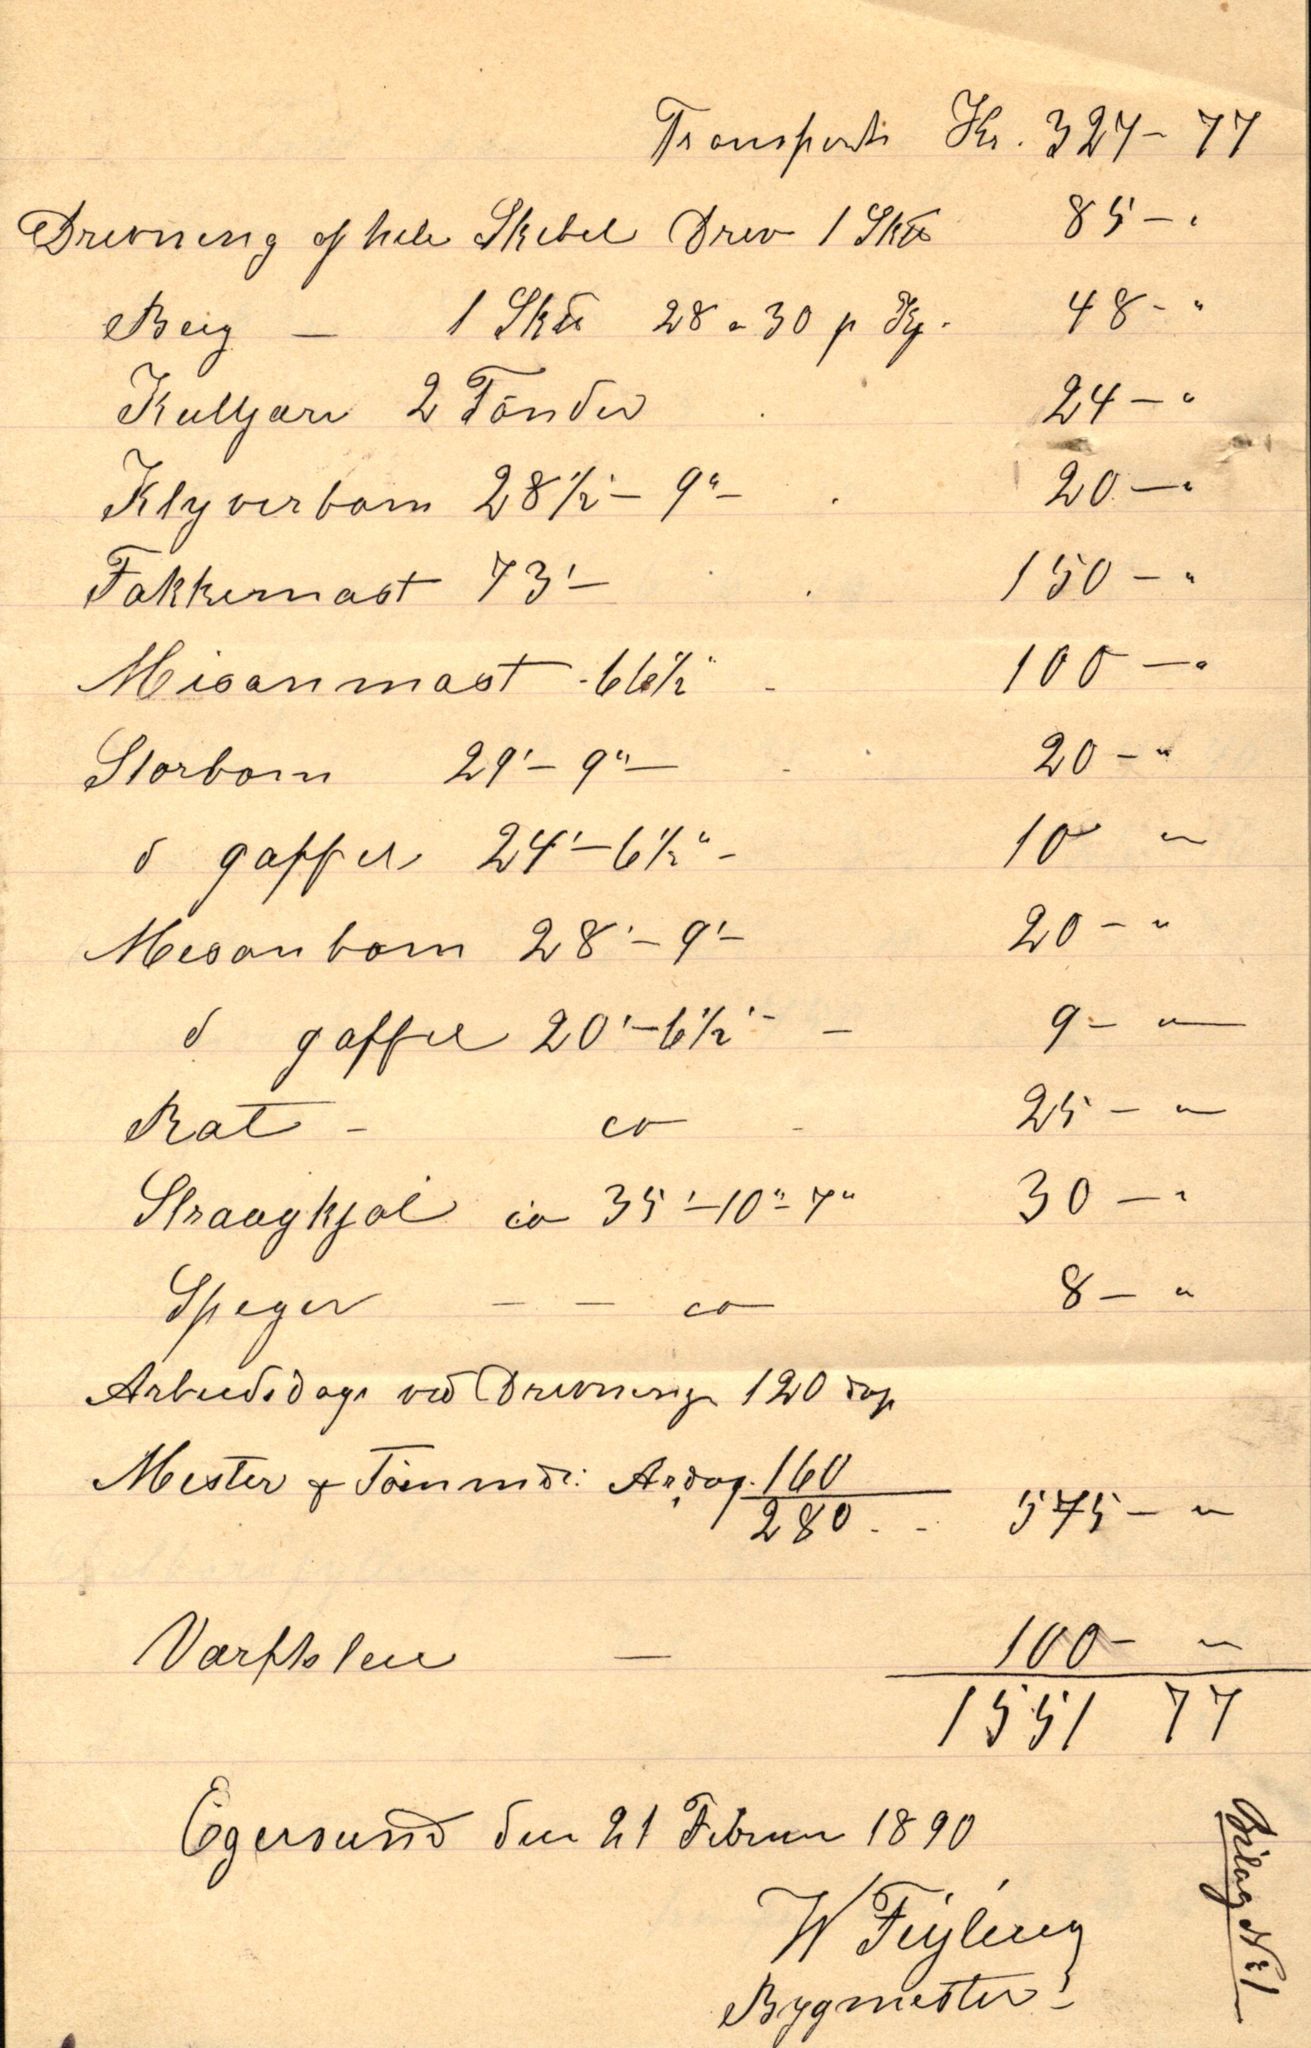 Transport Kr. 327 - 77
Drevning af hele Skibet Drev 1 Sk℔ 85 - "
Beg — 1 Sk℔ 28 a 30 p Kg. 48 - "
Kultjære 2 Tönder 24 - "
Klyverbom 28 1/2' - 9" - 20 - "
Fokkemast 73' - 150 - "
Misanmast 66 1/2' - 100 - "
Storbom 29' - 9" - 20 - "
do gaffel 24' - 6 1/2" - 10 "
Mesanbom 28' - 9' - 20 - "
do gaffel 20' - 6 1/2' - - 9 - "
Rat - ca - 25 - "
Straagkjöl ca 35' - 10" - 7" 30 - "
Speger - - ca 8 - "
Arbeidsdage ved Drevning 120 dag
Mester & Tömmdr: Ardag. 160
280 - - 575 - "
Varfsleie — 100 - "
1551 77
Egersund den 21 Februar 1890
W Feyling
Bygmester
Bilag No 1